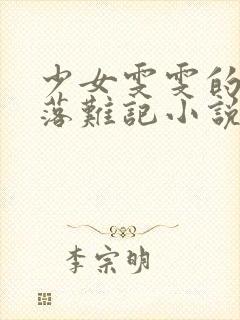 少女雯雯的
落難記小説
李宗明